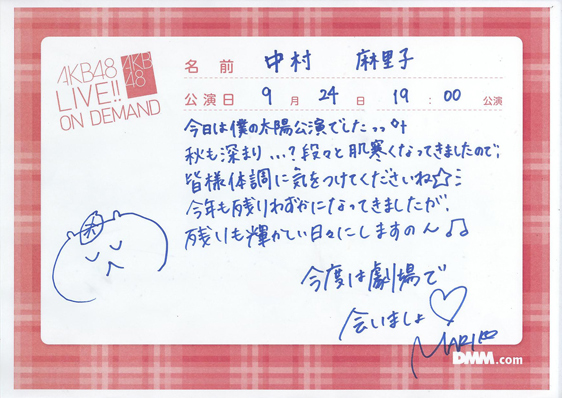 AKB48
LIVE!!
ON DEMAND
AKB
48
名前 中村 麻里子
公演日 9月24日 19:00 公演
今日は僕の太陽公演でしたっっ
秋も深まり…?段々と肌寒くなってきましたので、
皆様体調に気をつけてくださいね☆ミ
今年も残りわずかになってきましたが、
残りも輝かしい日々にしますのん♪♫
今度は劇場で
会いましょ♡
MARIKO
DMM.com